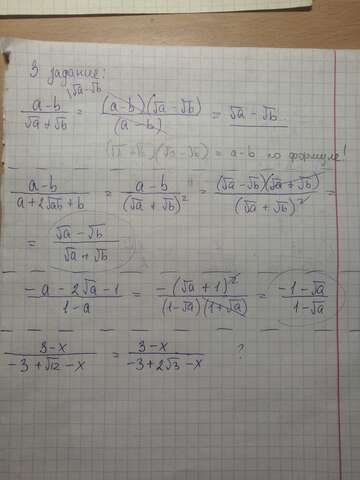 3 задание:
(a-b)/(√a+√b) ^(√a-√b) = ((a-b)(√a-√b))/(a-b) = √a-√b
(√a+√b)(√a-√b) = a-b по формуле!
(a-b)/(a+2√ab+b) = (a-b)/(√a+√b)² = ((√a-√b)(√a+√b))/(√a+√b)² =
= (√a-√b)/(√a+√b)
(-a-2√a-1)/(1-a) = (-(√a+1)²)/((1-√a)(1+√a)) = (-1-√a)/(1-√a)
(3-x)/(-3+√12-x) = (3-x)/(-3+2√3-x) ?